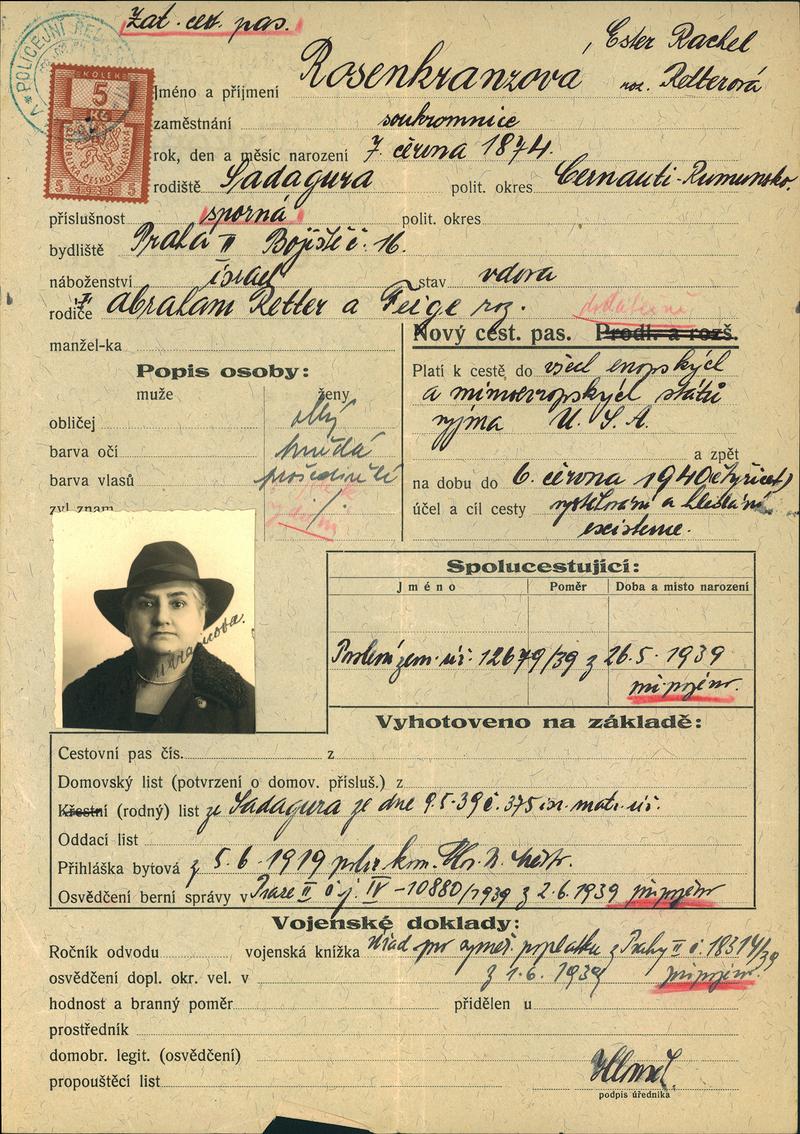 Zat. cest. pas.
POLICEJNÍ ŘED
KOLEK
5
Kč
REPUBLIKA ČESKOSLOVENSKÁ
5 1938 5
Jméno a příjmení Rosenkranzová, Ester Rachel
roz. Retterová
zaměstnání soukromnice
rok, den a měsíc narození 7. června 1874.
rodiště Sadagura polit. okres Cernauti-Rumunsko.
příslušnost sporná polit. okres
bydliště Praha II Bojiště č. 16.
náboženství israel stav vdova
rodiče Abraham Retter a Feige roz.
dodatečně
manžel-ka
Nový cest. pas. Prodl. a rozš.
Popis osoby:
muže ženy
obličej oblý
barva očí hnědá
barva vlasů prošedivělé
zvl znam
Platí k cestě do všech evropských
a mimoevropských států
vyjma U. S. A.
a zpět
na dobu do 6. června 1940 (čtyřicet)
účel a cíl cesty vystěhování a hledání
existence.
Spolucestující:
Jméno Poměr Doba a místo narození
zem. úř. 12679/39 z 26.5.1939
připojeno.
Vyhotoveno na základě:
Cestovní pas čís. z
Domovský list (potvrzení o domov. přísluš.) z
Křestní (rodný) list ze Sadagura ze dne 9.5.39 č. 375 isr. matr. úř.
Oddací list
Přihláška bytová z 5.6.1919 pol. kom.
Osvědčení berní správy v Praze II č.j. IV-10880/1939 z 2.6.1939 připojeno
Vojenské doklady:
Ročník odvodu vojenská knížka Úřad pro vyměř. poplatků z Prahy II č. 18314/39
osvědčení dopl. okr. vel. v z 1.6.1939 připojeno.
hodnost a branný poměr přidělen u
prostředník
domobr. legit. (osvědčení)
propouštěcí list
podpis úředníka